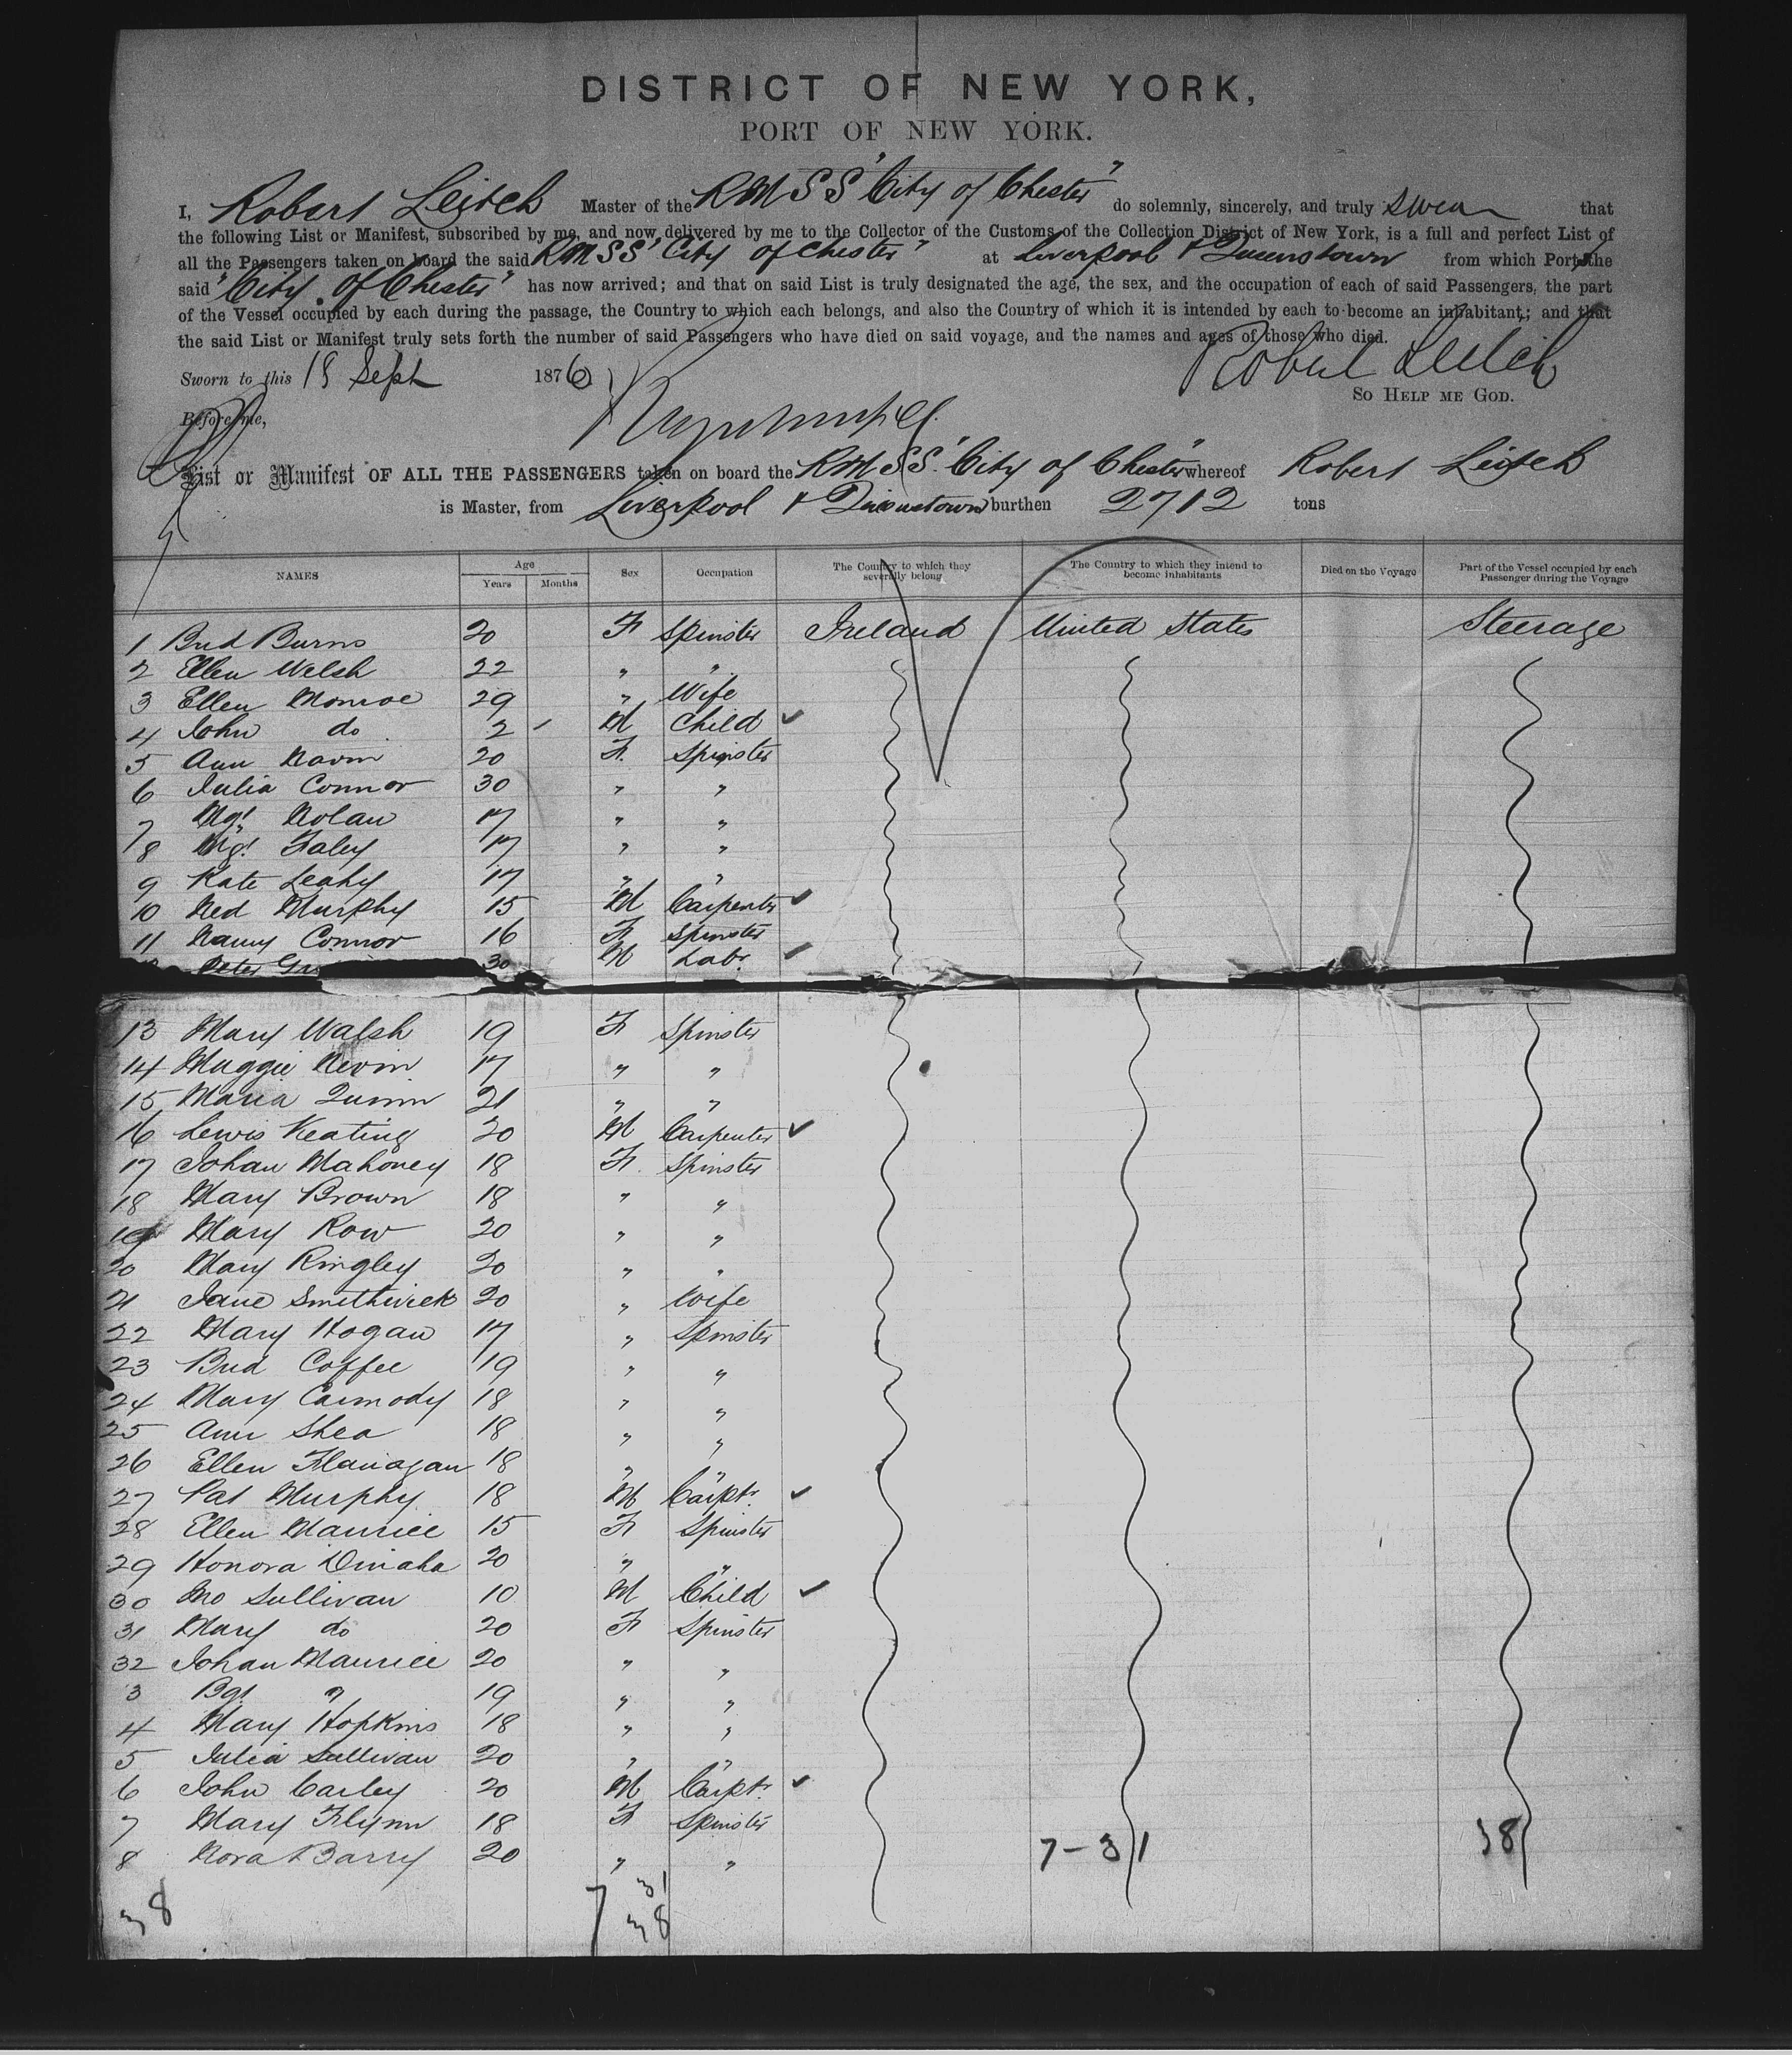 DISTRICT OF NEW YORK,
PORT OF NEW YORK.
I, Robert Leitch Master of the RMSS "City of Chester" do solemnly, sincerely, and truly swear that
the following List or Manifest, subscribed by me, and now delivered by me to the Collector of the Customs of the Collection District of New York, is a full and perfect List of
all the Passengers taken on board the said RMSS "City of Chester" at Liverpool & Queenstown from which Ports the
said "City of Chester" has now arrived; and that on said List is truly designated the age, the sex, and the occupation of each of said Passengers, the part
of the Vessel occupied by each during the passage, the Country to which each belongs, and also the Country of which it is intended by each to become an inhabitant; and that
the said List or Manifest truly sets forth the number of said Passengers who have died on said voyage, and the names and ages of those who died.
Sworn to this 18 Sept 1876 Robert Leitch
So Help me God.
Before me,
List or Manifest OF ALL THE PASSENGERS taken on board the RMSS "City of Chester" whereof Robert Leitch
is Master, from Liverpool & Queenstown burthen 2712 tons
NAMES Age Years Months Sex Occupation The Country to which they severally belong The Country to which they intend to become inhabitants Died on the Voyage Part of the Vessel occupied by each Passenger during the Voyage
1 Brid Burns 20 F Spinster Ireland United States Steerage
2 Ellen Welsh 22 " "
3 Ellen Monroe 29 " Wife
4 John do 2 M Child ✓
5 Ann Navin 20 F Spinster
6 Julia Connor 30 " "
7 Mgt Nolan 17 " "
8 Mgt Faley 17 " "
9 Kate Leahy 17 " "
10 Ned Murphy 15 M Carpenter ✓
11 Nanny Connor 16 F Spinster
Peter 30 M Labr ✓
13 Mary Walsh 19 F Spinster
14 Maggie Nevin 17 " "
15 Maria Quinn 21 " "
16 Lewis Keating 20 M Carpenter ✓
17 Johan Mahoney 18 F Spinster
18 Mary Brown 18 " "
19 Mary Row 20 " "
20 Mary Ringley 20 " "
21 Jane Smithwick 20 " Wife
22 Mary Hogan 17 " Spinster
23 Brid Coffee 19 " "
24 Mary Carmody 18 " "
25 Ann Shea 18 " "
26 Ellen Flanagan 18 " "
27 Pat Murphy 18 M Carptr ✓
28 Ellen Maurice 15 F Spinster
29 Honora Dinaha 20 " "
30 Jno Sullivan 10 M Child ✓
31 Mary do 20 F Spinster
32 Johan Maurice 20 " "
3 Bgt " 19 " "
4 Mary Hopkins 18 " "
5 Julia Sullivan 20 " "
6 John Carley 20 M Carptr ✓
7 Mary Flynn 18 F Spinster
8 Nora Barry 20 " " 7-31 38
38 7 31
38